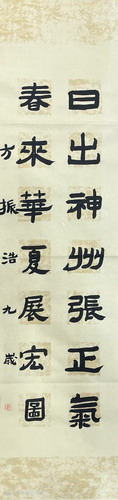 日出神州張正氣
春來華夏展宏圖
方振浩九歲